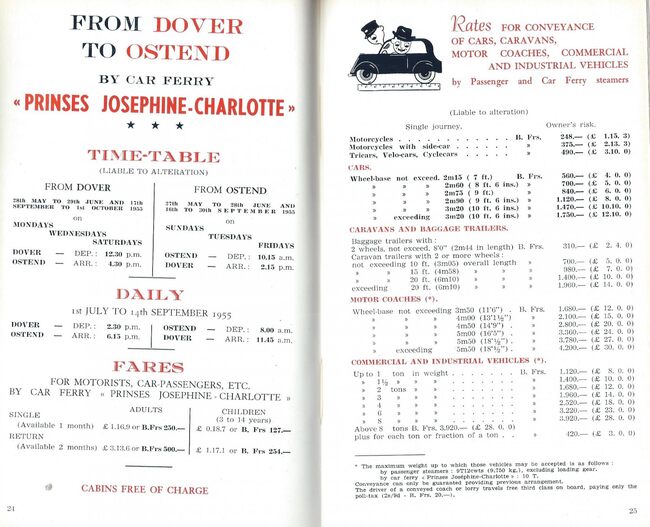 FROM DOVER
TO OSTEND
BY CAR FERRY
« PRINSES JOSEPHINE-CHARLOTTE »
★ ★ ★
TIME-TABLE
(LIABLE TO ALTERATION)
FROM DOVER
28th MAY TO 29th JUNE AND 17th
SEPTEMBER TO 1st OCTOBER 1955
on
MONDAYS
WEDNESDAYS
SATURDAYS
DOVER — DEP.: 12.30 p.m.
OSTEND — ARR.: 4.30 p.m.
FROM OSTEND
27th MAY TO 28th JUNE AND
16th TO 30th SEPTEMBER 1955
on
SUNDAYS
TUESDAYS
FRIDAYS
OSTEND — DEP.: 10.15 a.m.
DOVER — ARR.: 2.15 p.m.
DAILY
1st JULY TO 14th SEPTEMBER 1955
DOVER — DEP.: 2.30 p.m.
OSTEND — ARR.: 6.15 p.m.
OSTEND — DEP.: 8.00 a.m.
DOVER — ARR.: 11.45 a.m.
FARES
FOR MOTORISTS, CAR-PASSENGERS, ETC.
BY CAR FERRY « PRINSES JOSEPHINE-CHARLOTTE »
ADULTS
CHILDREN
(3 to 14 years)
SINGLE
(Available 1 month) £ 1.16.9 or B.Frs 250.— £ 0.18.7 or B. Frs 127.—
RETURN
(Available 2 months) £ 3.13.6 or B.Frs 500.— £ 1.17.1 or B. Frs 254.—
CABINS FREE OF CHARGE
24
Rates FOR CONVEYANCE
OF CARS, CARAVANS,
MOTOR COACHES, COMMERCIAL
AND INDUSTRIAL VEHICLES
by Passenger and Car Ferry steamers
(Liable to alteration)
Single journey. Owner's risk.
Motorcycles . . . . . . . . . . . B. Frs. 248.— (£ 1.15. 3)
Motorcycles with side-car . . . . . . . » 375.— (£ 2.13. 3)
Tricars, Velo-cars, Cyclecars . . . . . . » 490.— (£ 3.10. 0)
CARS.
Wheel-base not exceed. 2m15 ( 7 ft.) B. Frs. 560.— (£ 4. 0. 0)
» » » 2m60 ( 8 ft. 6 ins.) » 700.— (£ 5. 0. 0)
» » » 2m75 ( 9 ft.) » 840.— (£ 6. 0. 0)
» » » 2m90 ( 9 ft. 6 ins.) » 1.120.— (£ 8. 0. 0)
» » » 3m20 (10 ft. 6 ins.) » 1.470.— (£ 10.10. 0)
» exceeding 3m20 (10 ft. 6 ins.) » 1.750.— (£ 12.10. 0)
CARAVANS AND BAGGAGE TRAILERS.
Baggage trailers with :
2 wheels, not exceed. 8'0" (2m44 in length) B. Frs. 310.— (£ 2. 4. 0)
Caravan trailers with 2 or more wheels :
not exceeding 10 ft. (3m05) overall length » 700.— (£ 5. 0. 0)
» » 15 ft. (4m58) » » » 980.— (£ 7. 0. 0)
» » 20 ft. (6m10) » » » 1.400.— (£ 10. 0. 0)
exceeding 20 ft. (6m10) » » » 1.960.— (£ 14. 0. 0)
MOTOR COACHES (*).
Wheel-base not exceeding 3m50 (11'6") . B. Frs. 1.680.— (£ 12. 0. 0)
» » » 4m00 (13'1½") . » 2.100.— (£ 15. 0. 0)
» » » 4m50 (14'9") . » 2.800.— (£ 20. 0. 0)
» » » 5m00 (16'5") . » 3.360.— (£ 24. 0. 0)
» » » 5m50 (18'½") . » 3.780.— (£ 27. 0. 0)
» exceeding 5m50 (18'½") . » 4.200.— (£ 30. 0. 0)
COMMERCIAL AND INDUSTRIAL VEHICLES (*).
Up to 1 ton in weight . . . . . . B. Frs. 1.120.— (£ 8. 0. 0)
» 1½ » » » . . . . . . » 1.400.— (£ 10. 0. 0)
» 2 tons » » . . . . . . » 1.680.— (£ 12. 0. 0)
» 3 » » » . . . . . . » 1.960.— (£ 14. 0. 0)
» 4 » » » . . . . . . » 2.520.— (£ 18. 0. 0)
» 6 » » » . . . . . . » 3.220.— (£ 23. 0. 0)
» 8 » » » . . . . . . » 3.920.— (£ 28. 0. 0)
Above 8 tons B. Frs. 3,920.— (£ 28. 0. 0)
plus for each ton or fraction of a ton . . » 420.— (£ 3. 0. 0)
* The maximum weight up to which those vehicles may be accepted is as follows :
by passenger steamers : 9T12cwts (9.750 kg.), excluding loading gear.
by car ferry « Prinses Joséphine-Charlotte » : 10 T.
Conveyance can only be guaranted providing previous arrangement.
The driver of a conveyed coach or lorry travels free third class on board, paying only the
poll-tax (2s/9d - B. Frs. 20,—).
25